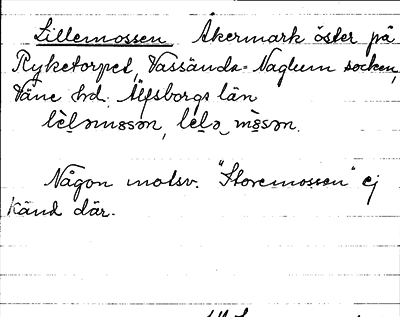 Lillemossen Åkermark öster på
Ryketorpet, Vassända-Naglum socken,
Väne hd. Älfsborgs län
Någon motsv. "Storemossen" ej
känd där.